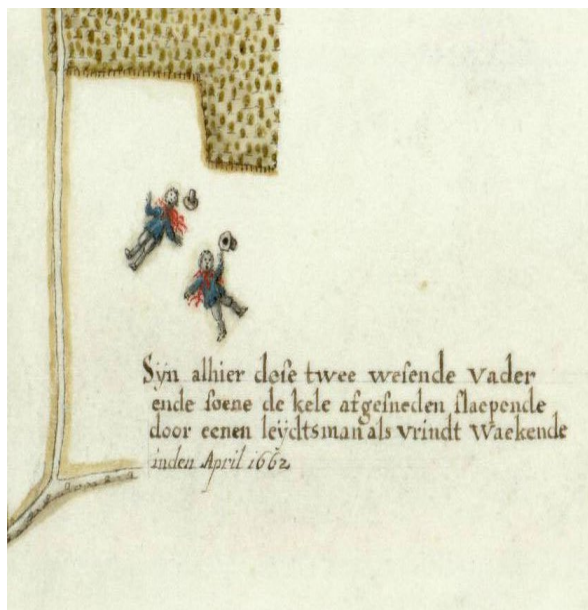 Sijn alhier dese twee wesende vader
ende soene de kele afgesneden slaepende
door eenen leijdtsman als vrindt Waekende
inden April 1662